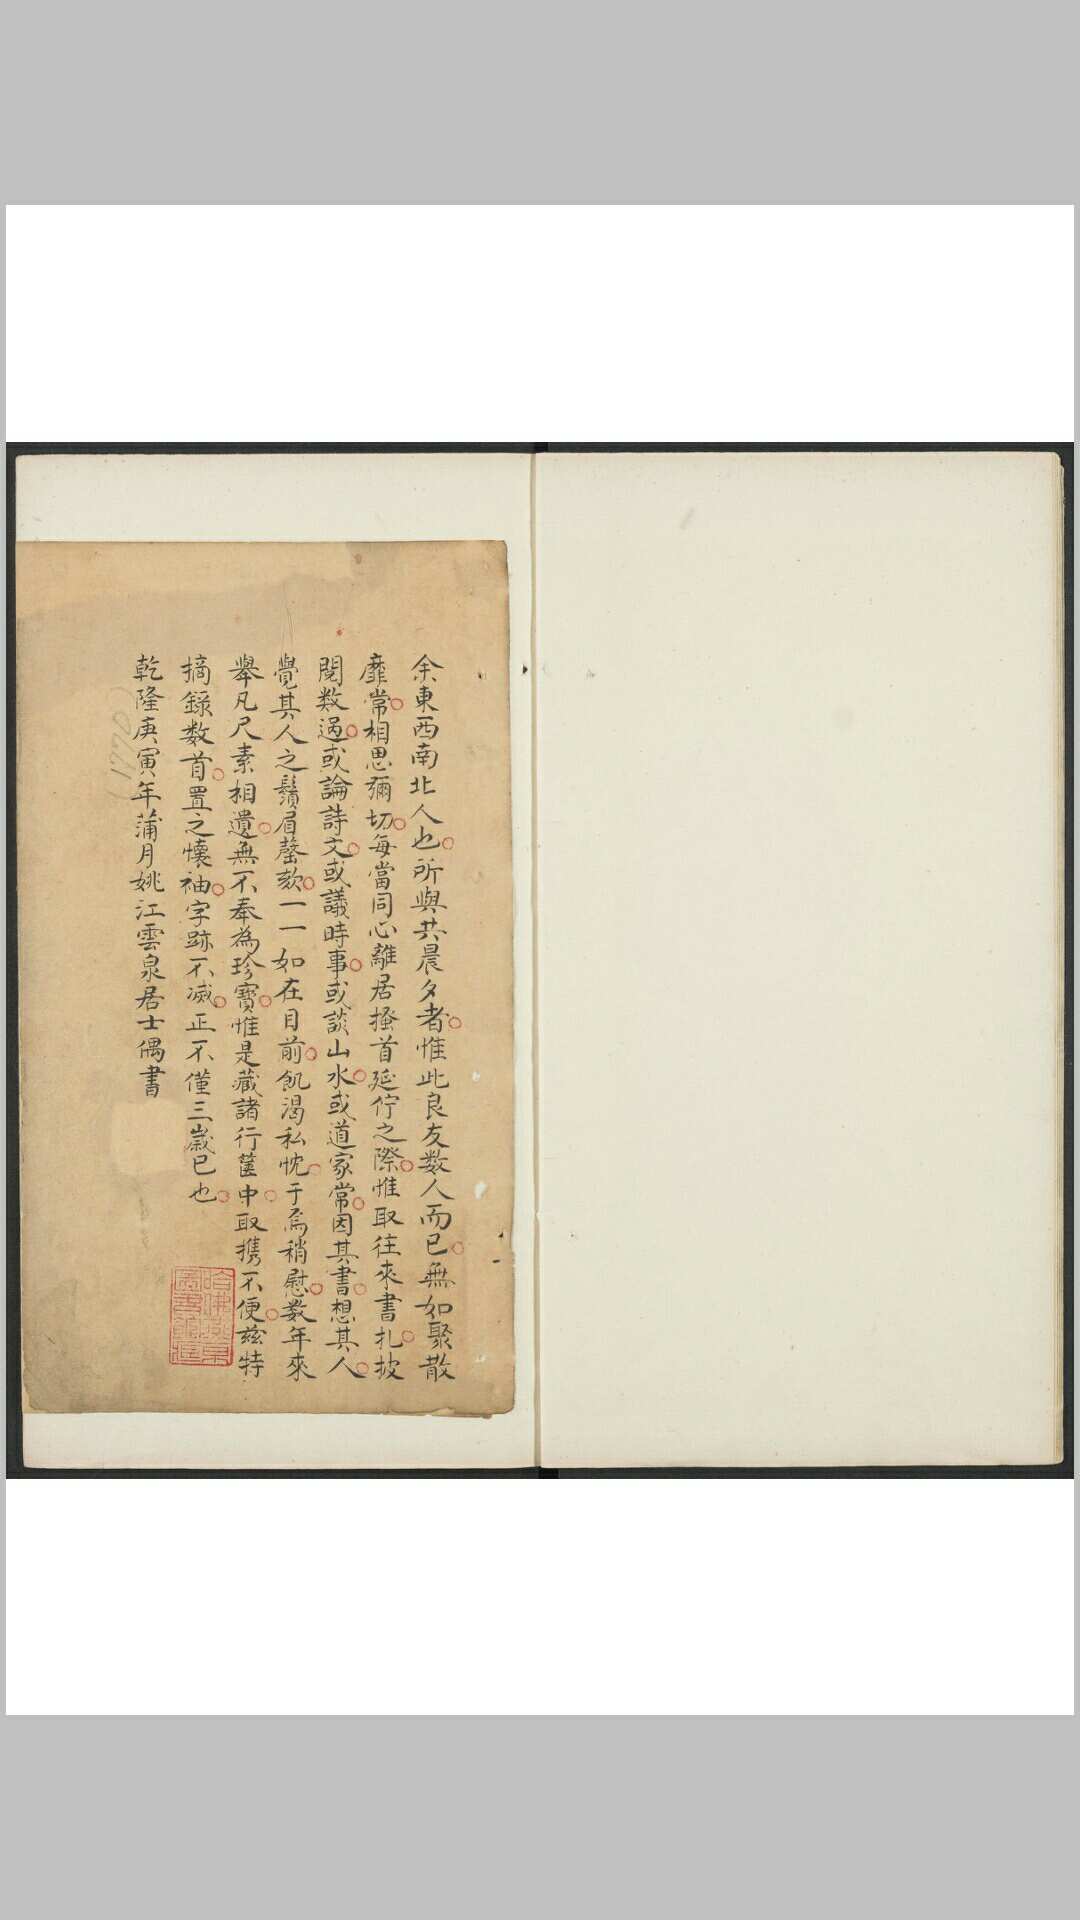 余東西南北人也所與共晨夕者惟此良友数人而已無如聚散
靡常相思彌切每當同心離居搔首延佇之際惟取往來書扎披
閱数過或論詩文或議時事或談山水或道家常因其書想其人
覺其人之鬚眉謦欬一一如在目前飢渴私忱于焉稍慰数年來
舉凡尺素相遺無不奉為珍寶惟是藏諸行篋中取携不便茲特
摘錄数首置之懷袖字跡不滅正不僅三歲已也
乾隆庚寅年蒲月姚江雲泉居士偶書
1770
哈佛燕京
圖書館藏